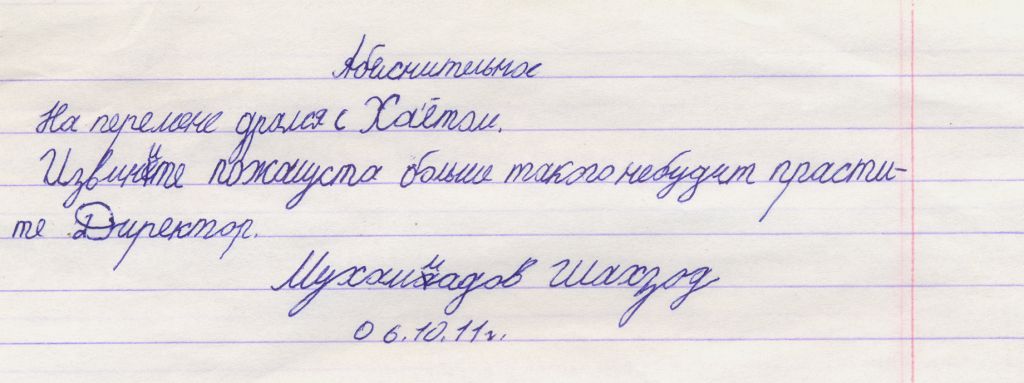 Абеснительное
На перемене дрался с Хаётом.
Извините пожалуста больше такого небудит прасти-
те Директор.
Мухаммадов Шахзод
06.10.11г.